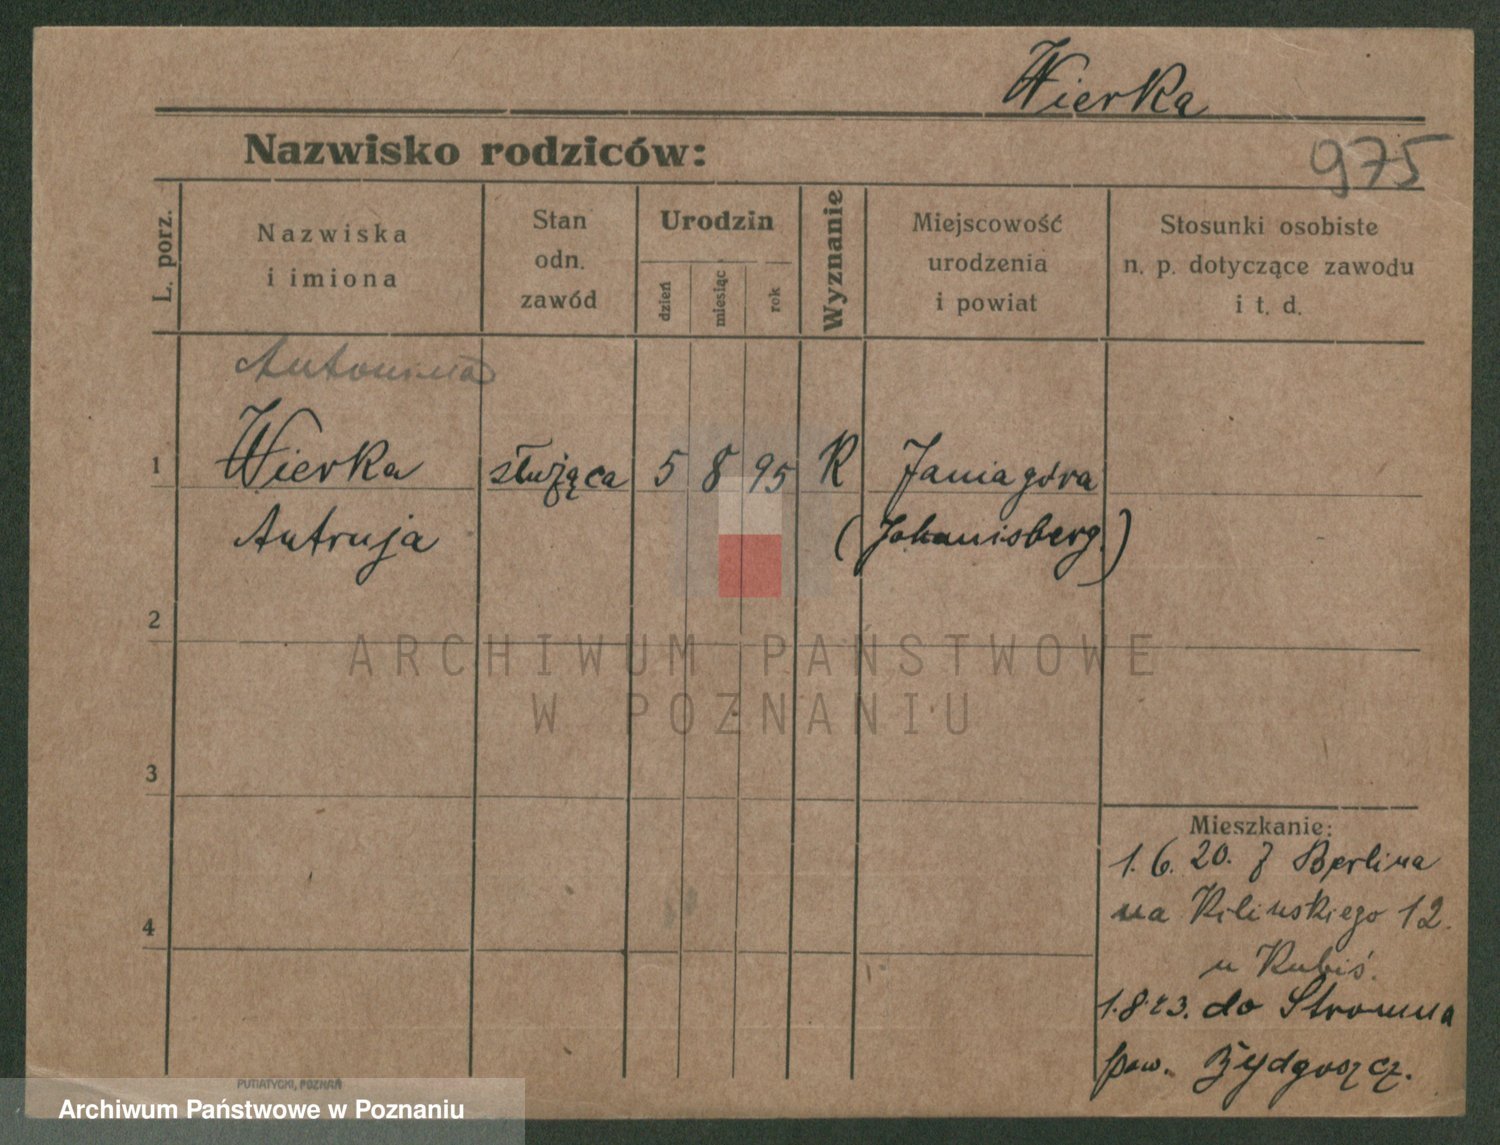 Wierka
Nazwisko rodziców:
975
L. porz.
Nazwiska
i imiona
Stan
odn.
zawód
Urodzin
dzień
miesiąc
rok
Wyznanie
Miejscowość
urodzenia
i powiat
Stosunki osobiste
n. p. dotyczące zawodu
i t. d.
Antonina
1 Wierka służąca 5 8 95 R Janiagóra
Antruja (Johanisberg.)
2
ARCHIWUM PAŃSTWOWE
W POZNANIU
3
Mieszkanie:
1.6.20. z Berlina
na Kilinskiego 12.
4
u Kubiś.
1.8.23. do Stromna
pow. Bydgoszcz.
PUTIATYCKI, POZNAŃ
Archiwum Państwowe w Poznaniu